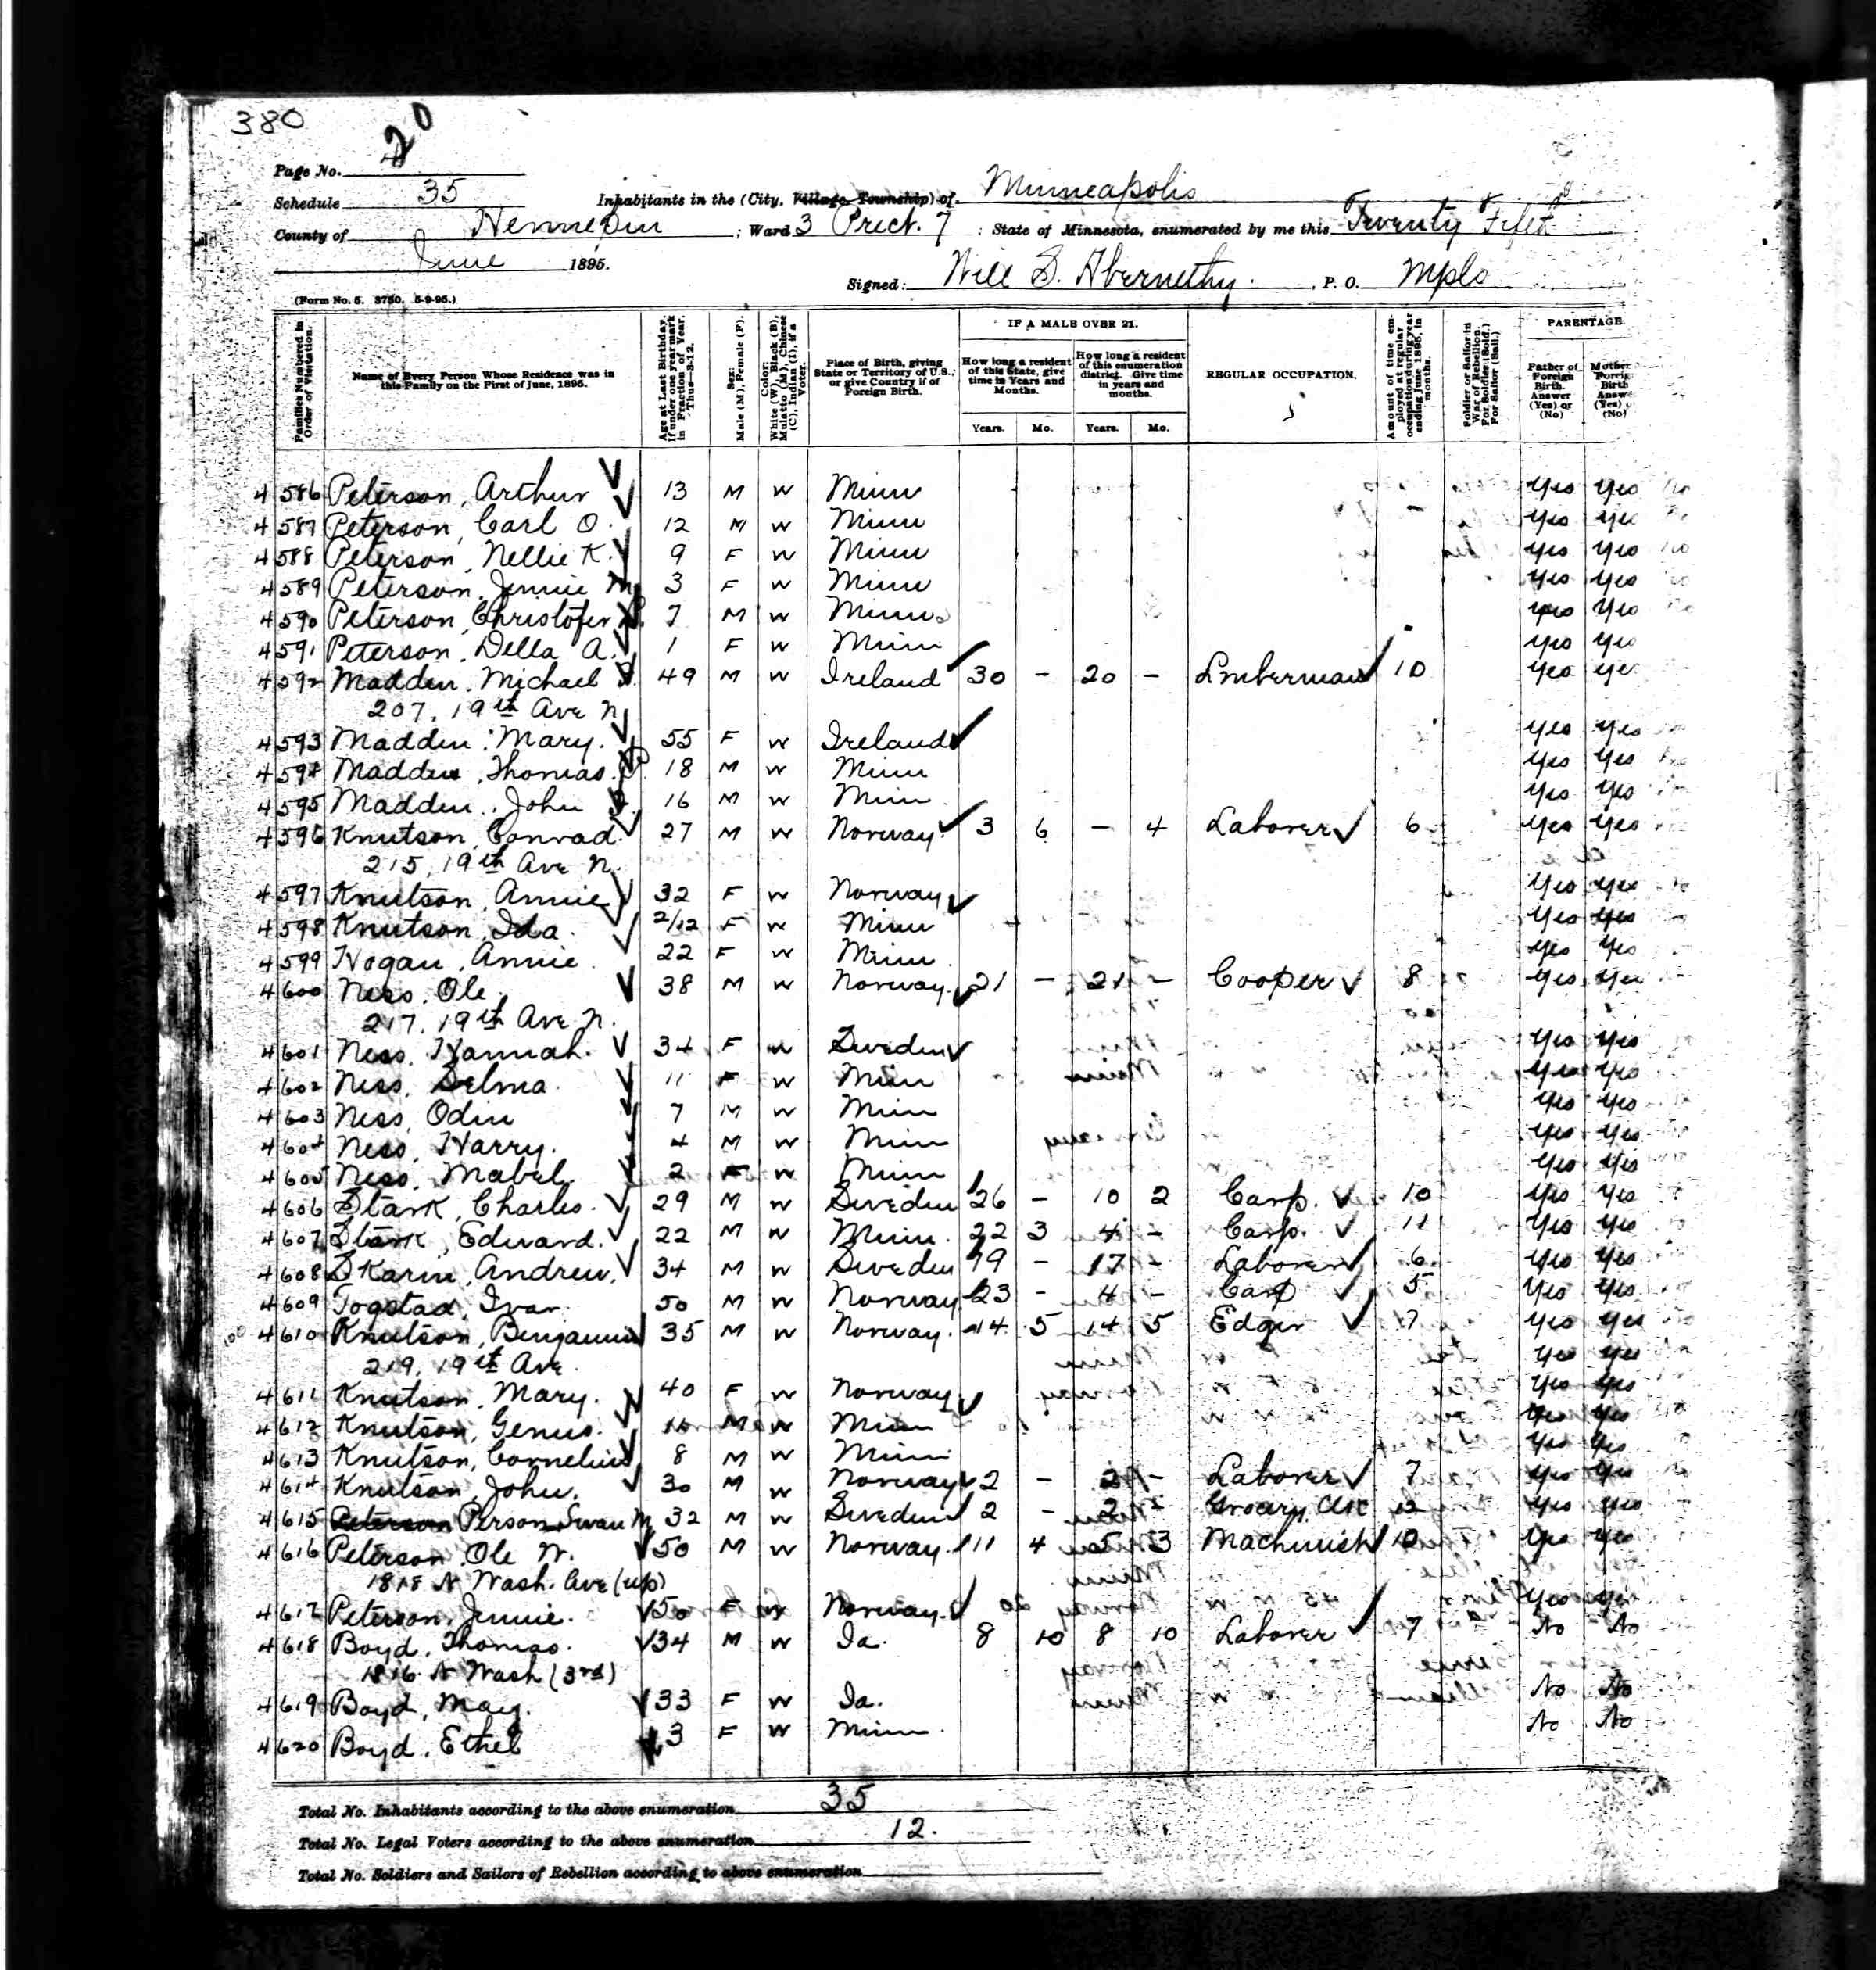 380
20
Page No.
Schedule 35 Inhabitants in the (City, Village, Township) of Minneapolis
County of Hennepin ; Ward 3 Prect. 7 : State of Minnesota, enumerated by me this Twenty Fifth
June 1895.
Signed: Will S. Abernethy. P. O. Mpls
(Form No. 5. 3750. 5-9-95.)
Families Numbered in Order of Visitation.
Name of Every Person Whose Residence was in this Family on the First of June, 1895.
Age at Last Birthday. If under one year mark in Fraction of Year. Thus—3-12.
Sex: Male (M), Female (F).
Color: White (W), Black (B), Mulatto (M), Chinese (C), Indian (I), if a Voter.
Place of Birth, giving State or Territory of U.S.; or give Country if of Foreign Birth.
IF A MALE OVER 21.
How long a resident of this State, give time in Years and Months.
How long a resident of this enumeration district. Give time in years and months.
Years. Mo. Years. Mo.
REGULAR OCCUPATION.
Amount of time employed at regular occupation during year ending June 1895, in months.
Soldier or Sailor in War of Rebellion. For Soldier (Sold.) For Sailor (Sail.)
PARENTAGE.
Father of Foreign Birth. Answer (Yes) or (No)
Mother Foreig Birth Answ (Yes) (No)
4586 Peterson, Arthur 13 M W Minn Yes Yes
4587 Peterson, Carl O. 12 M W Minn Yes Yes
4588 Peterson, Nellie K. 9 F W Minn Yes Yes
4589 Peterson, Jennie M. 3 F W Minn Yes Yes
4590 Peterson, Christofer 7 M W Minn Yes Yes
4591 Peterson, Della A. 1 F W Minn Yes Yes
4592 Madden, Michael 49 M W Ireland 30 - 20 - Lmberman 10 Yes Yes
207. 19th Ave N
4593 Madden, Mary. 55 F W Ireland Yes Yes
4594 Madden, Thomas. 18 M W Minn Yes Yes
4595 Madden, John 16 M W Minn Yes Yes
4596 Knutson, Conrad 27 M W Norway 3 6 - 4 Laborer 6 Yes Yes
215, 19th Ave N.
4597 Knutson, Annie 32 F W Norway Yes Yes
4598 Knutson, Ida. 2/12 F W Minn Yes Yes
4599 Hogan, Annie. 22 F W Minn Yes Yes
4600 Ness, Ole. 38 M W Norway 21 - 21 - Cooper 8 Yes Yes
217. 19th Ave N.
4601 Ness, Hannah. 34 F W Sweden Yes Yes
4602 Ness, Selma. 11 F W Minn Yes Yes
4603 Ness, Odin 7 M W Minn Yes Yes
4604 Ness, Harry. 4 M W Minn Yes Yes
4605 Ness, Mabel. 2 F W Minn Yes Yes
4606 Stark, Charles. 29 M W Sweden 26 - 10 2 Carp. 10 Yes Yes
4607 Stark, Edward. 22 M W Minn. 22 3 4 - Carp. 11 Yes Yes
4608 Skarin, Andrew. 34 M W Sweden 19 - 17 - Laborer 6 Yes Yes
4609 Togstad, Ivar. 50 M W Norway 23 - 4 - Carp 5 Yes Yes
4610 Knutson, Benjamin 35 M W Norway. 14 5 14 5 Edger 7 Yes Yes
219, 19th Ave. Yes Yes
4611 Knutson, Mary. 40 F W Norway Yes Yes
4612 Knutson, Genus. M W Minn Yes Yes
4613 Knutson, Cornelius 8 M W Minn Yes Yes
4614 Knutson, John. 30 M W Norway 2 - 2 - Laborer 7 Yes Yes
4615 Peterson Person Swan M 32 M W Sweden 2 - 2 - Grocery Clk 12 Yes Yes
4616 Peterson Ole N. 50 M W Norway. 11 4 5 3 Machinist 10 Yes Yes
1818 N Wash. Ave (up)
4617 Peterson, Jennie. 50 F W Norway Yes Yes
4618 Boyd, Thomas. 34 M W Ia. 8 10 8 10 Laborer 7 No No
1816 N Wash (3rd)
4619 Boyd, May. 33 F W Ia. No No
4620 Boyd, Ethel 3 F W Minn. No No
Total No. Inhabitants according to the above enumeration 35
Total No. Legal Voters according to the above enumeration 12.
Total No. Soldiers and Sailors of Rebellion according to above enumeration